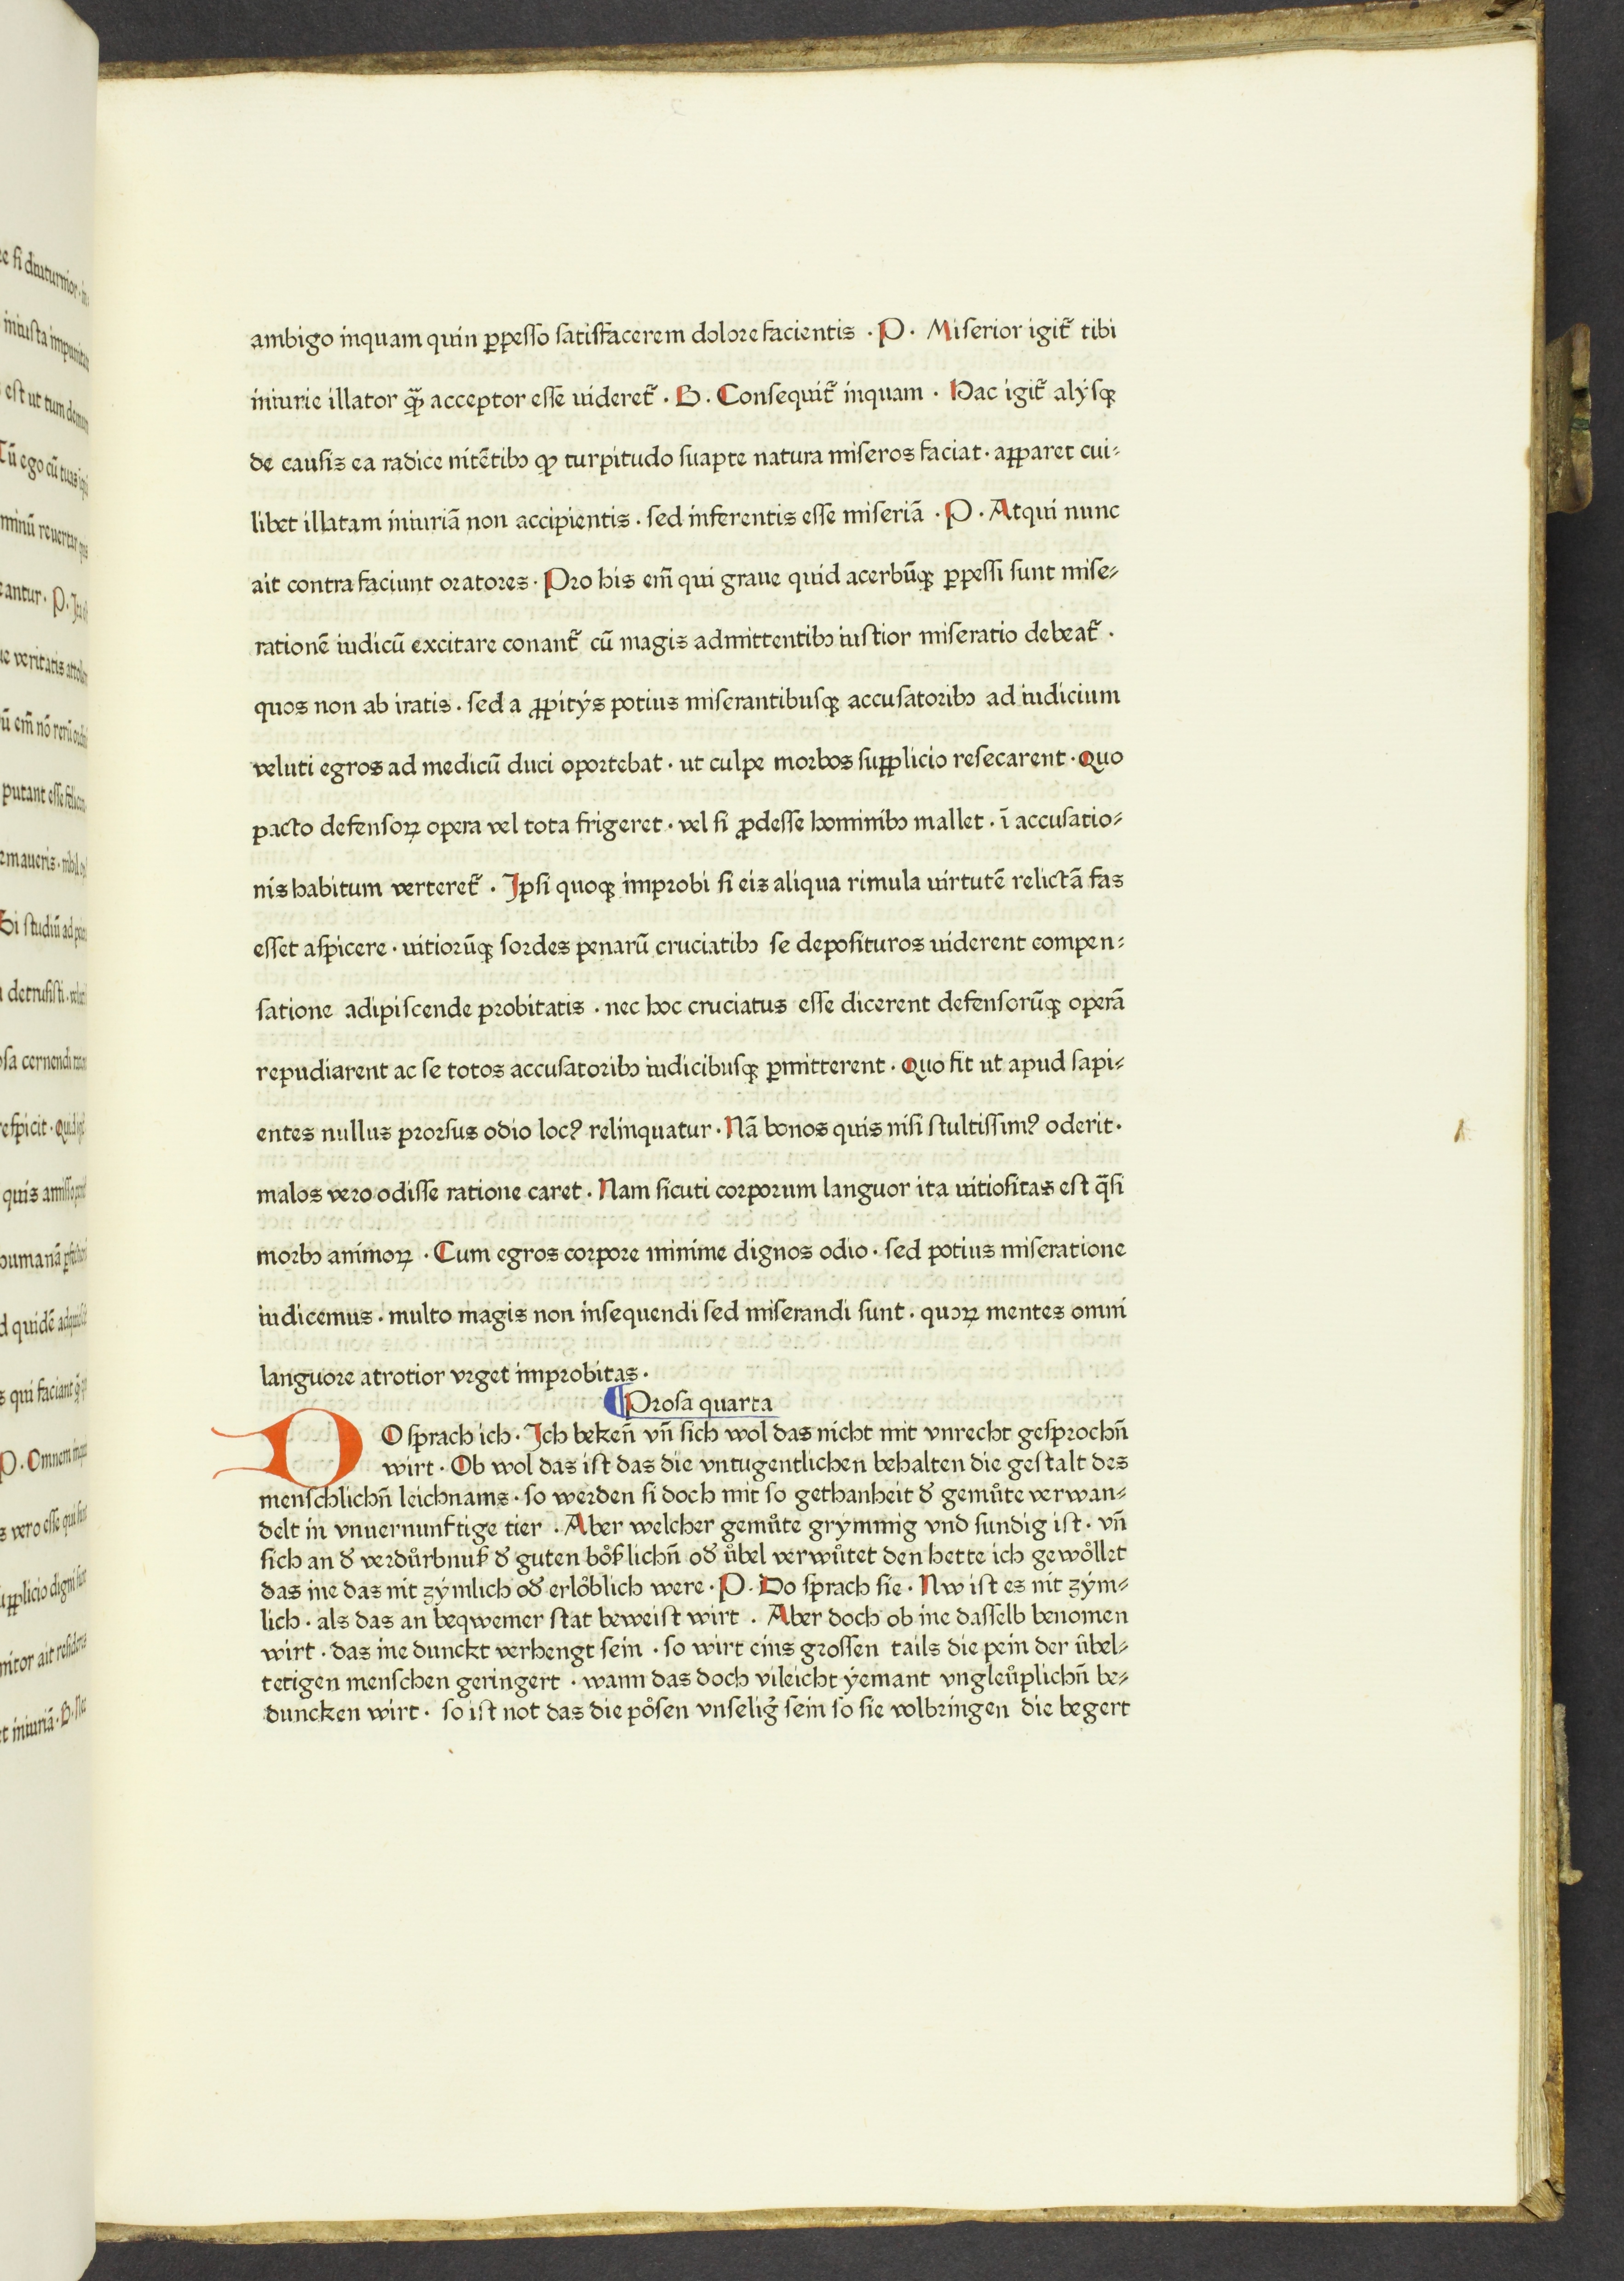 ambigo inquam quin ꝑpesso satisfacerem dolore facientis · P · Miserior igit᷑ tibi
iniurie illator qꝫ̈ acceptor esse uideret᷑ · B · Consequit᷑ inquam · Hac igit᷑ alÿsqꝫ
de causis ea radice nitẽtibꝰ ꝙ turpitudo suapte natura miseros faciat · apparet cui-
libet illatam iniuriã non accipientis · sed inferentis esse miseriã · P · Atqui nunc
ait contra faciunt oratores · Pro his em̃ qui graue quid acerbũqꝫ ꝑpessi sunt mise-
rationẽ iudicũ excitare conant᷑ cũ magis admittentibꝰ iustior miseratio debeat᷑ ·
quos non ab iratis · sed a ꝓpitÿs potius miserantibusqꝫ accusatoribꝰ ad iudicium
veluti egros ad medicũ duci oportebat · ut culpe morbos supplicio resecarent · Quo
pacto defensoꝝ opera vel tota frigeret · vel si ꝓdesse hominibꝰ mallet · ĩ accusatio-
nis habitum verteret᷑ · Ipsi quoqꝫ improbi si eis aliqua rimula uirtutẽ relictã fas
esset aspicere · uitiorũqꝫ sordes penarũ cruciatibꝰ se deposituros uiderent compen-
satione adipiscende probitatis · nec hoc cruciatus esse dicerent defensorũqꝫ operã
repudiarent ac se totos accusatoribꝰ iudicibusqꝫ ꝑmitterent · Quo fit ut apud sapi-
entes nullus prorsus odio locꝰ relinquatur · Nã bonos quis nisi stultissimꝰ oderit ·
malos vero odisse ratione caret · Nam sicuti corporum languor ita uitiositas est q̃si
morbꝰ animoꝝ · Cum egros corpore minime dignos odio · sed potius miseratione
iudicemus · multo magis non insequendi sed miserandi sunt · quoꝝ mentes omni
languore atrotior vrget improbitas ·
¶ Prosa quarta
DO sprach ich · Ich bekeñ vñ sich wol das nicht mit vnrecht gesprochñ
wirt · Ob wol das ist das die vntugentlichen behalten die gestalt des
menschlichñ leichnams · so werden si doch mit so gethanheit đ gemůte verwan-
delt in vnuernunftige tier · Aber welcher gemůte grymmig vnd sundig ist · vñ
sich an đ verdůrbnuß đ guten boͤßlichñ ođ ůbel verwůtet den hette ich gewoͤllet
das ine das nit zÿmlich ođ erloͤblich were · P · Do sprach sie · Nw ist es nit zÿm-
lich · als das an beqwemer stat beweist wirt · Aber doch ob ine dasselb benomen
wirt · das ine dunckt verhengt sein · so wirt eins grossen tails die pein der ůbel-
tetigen menschen geringert · wann das doch vileicht ÿemant vngleůplichñ be-
duncken wirt · so ist not das die poͤsen vnselig᷑ sein so sie volbringen die begert